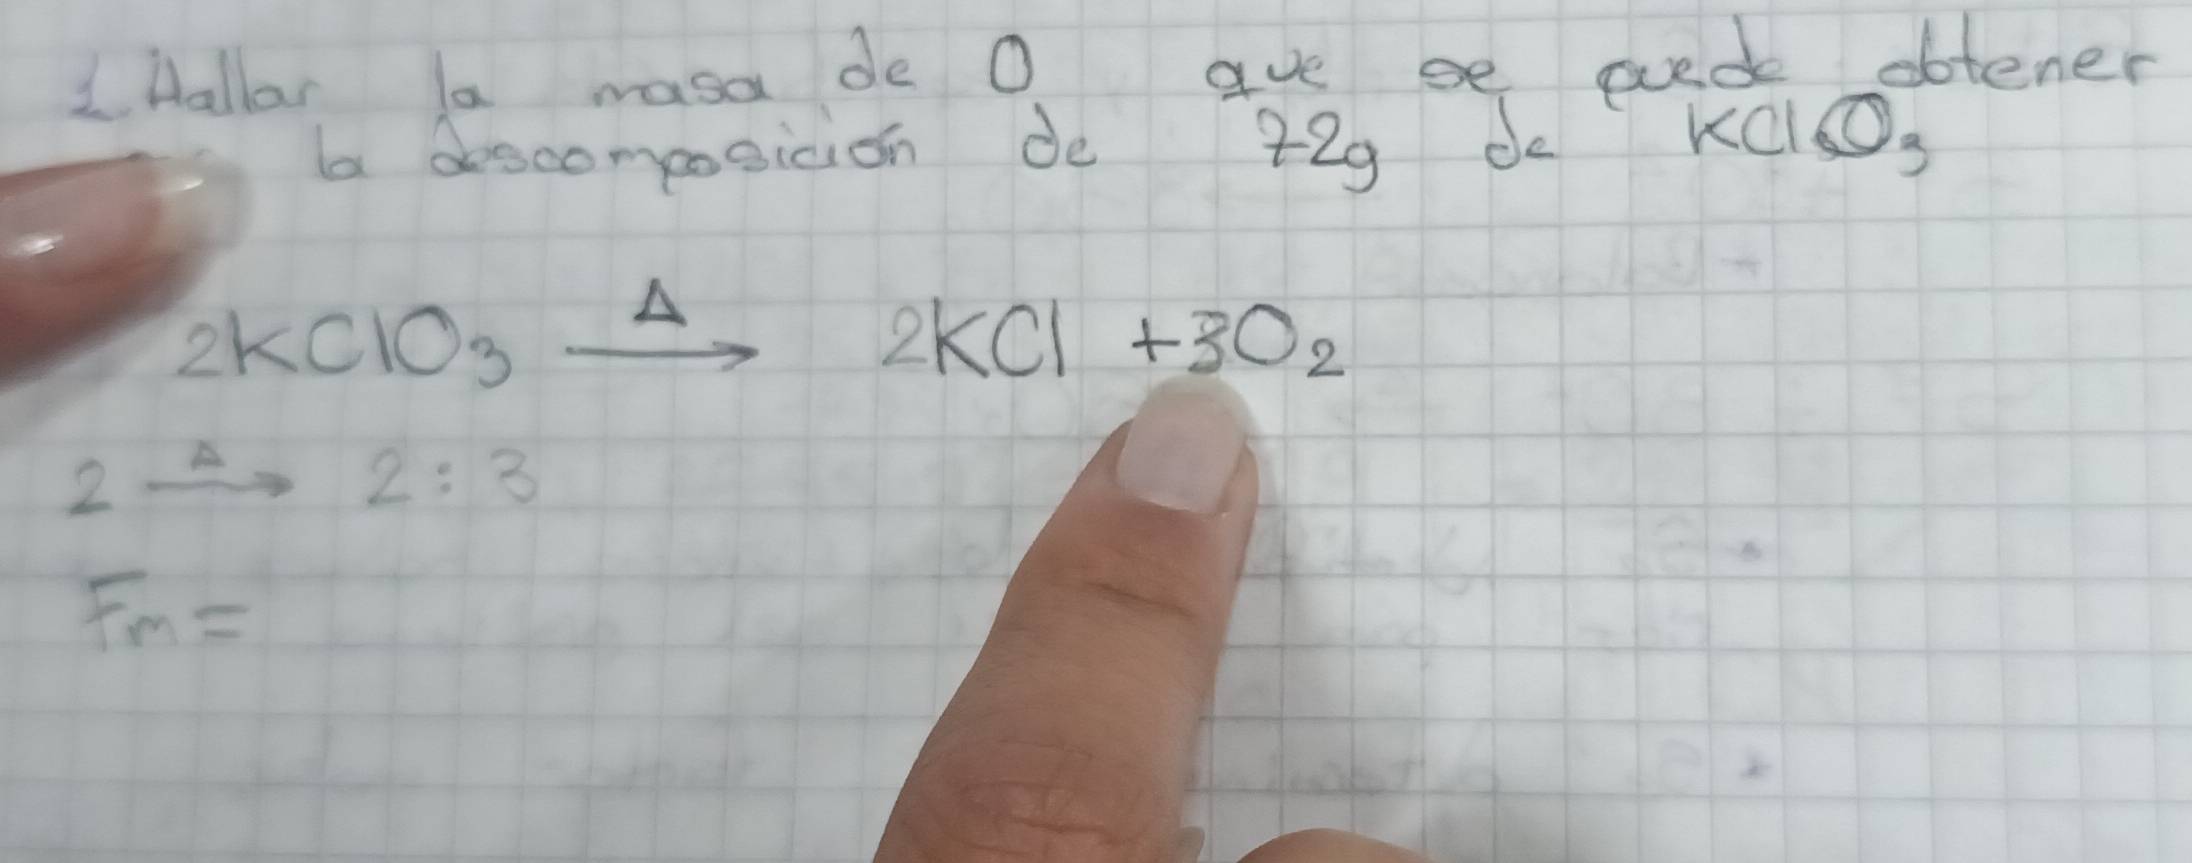 1. Hallar la masa de O que se puede obtener
la descomposición de 72g de KClO₃
2KClO₃ Δ→ 2KCl + 3O₂
2 Δ→ 2 : 3
Fm =